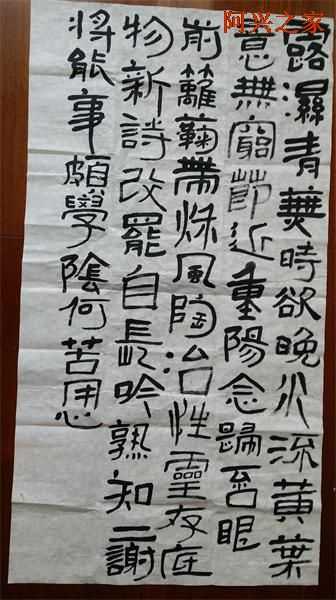 阿兴之家
露濕青蕪時欲晚水流黃葉
意無窮節近重陽念歸否眼
前籬菊帶秋風陶冶性靈存底
物新詩改罷自長吟熟知二謝
將能事頗學陰何苦用心